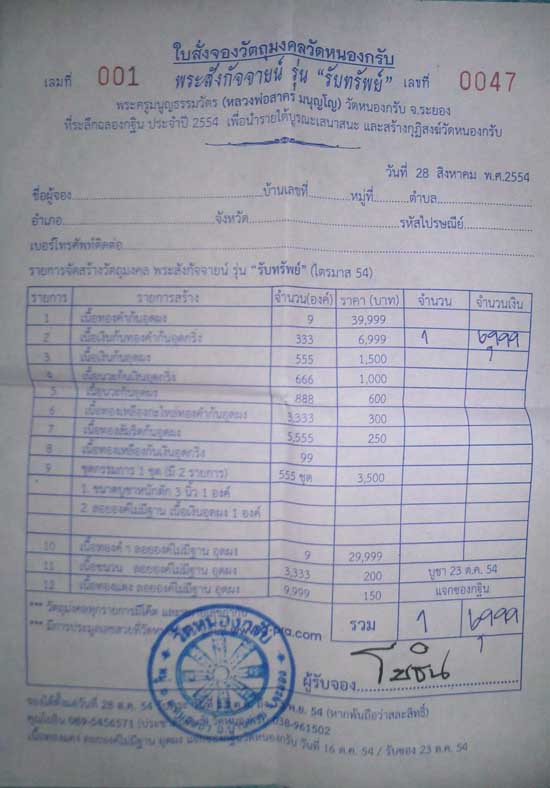 ใบสั่งจองวัตถุมงคลวัดหนองกรับ
เล่มที่ 001 พระสังกัจจายน์ รุ่น "รับทรัพย์" เลขที่ 0047
พระครูมนูญธรรมวัตร (หลวงพ่อสาคร มนุญโญ) วัดหนองกรับ จ.ระยอง
ที่ระลึกฉลองกฐิน ประจำปี 2554 เพื่อนำรายได้บูรณะเสนาสนะ และสร้างกุฏิสงฆ์วัดหนองกรับ
วันที่ 28 สิงหาคม พ.ศ.2554
ชื่อผู้จอง บ้านเลขที่ หมู่ที่ ตำบล
อำเภอ จังหวัด รหัสไปรษณีย์
เบอร์โทรศัพท์ติดต่อ
รายการจัดสร้างวัตถุมงคล พระสังกัจจายน์ รุ่น "รับทรัพย์" (ไตรมาส 54)
รายการ รายการสร้าง จำนวน(องค์) ราคา (บาท) จำนวน จำนวนเงิน
1 เนื้อทองคำก้นอุดผง 9 39,999
2 เนื้อเงินก้นทองคำอุดกริ่ง 333 6,999 1 6999
3 เนื้อเงินก้นอุดผง 555 1,500
4 เนื้อนวะก้นเงินอุดกริ่ง 666 1,000
5 เนื้อนวะก้นอุดผง 888 600
6 เนื้อทองเหลืองกะไหล่ทองคำก้นอุดผง 3,333 300
7 เนื้อทองสัมริดก้นอุดผง 5,555 250
8 เนื้อทองเหลืองก้นเงินอุดกริ่ง 99
9 ชุดกรรมการ 1 ชุด (มี 2 รายการ) 555 ชุด 3,500
1. ขนาดบูชาหน้าตัก 3 นิ้ว 1 องค์
2. ลอยองค์ไม่มีฐาน เนื้อเงินอุดผง 1 องค์
10 เนื้อทองคำ ลอยองค์ไม่มีฐาน อุดผง 9 29,999
11 เนื้อชนวน ลอยองค์ไม่มีฐาน อุดผง 3,333 200 บูชา 23 ต.ค. 54
12 เนื้อทองแดง ลอยองค์ไม่มีฐาน อุดผง 9,999 150 แจกของกฐิน
*** วัตถุมงคลทุกรายการมีโค๊ด
*** มีการประมูลเลขสวยที่วัด รวม 1 6999
วัดหนองกรับ
ผู้รับจอง โยธิน
จองได้ตั้งแต่วันที่ 28 ส.ค. 54 พ.ย. 54 (หากพ้นถือว่าสละสิทธิ์)
คุณโยธิน 089-5456571 วัดหนองกรับ 038-961502
เนื้อทองแดง ลอยองค์ไม่มีฐาน อุดผง วัดหนองกรับ วันที่ 16 ต.ค. 54 / รับของ 23 ต.ค. 54